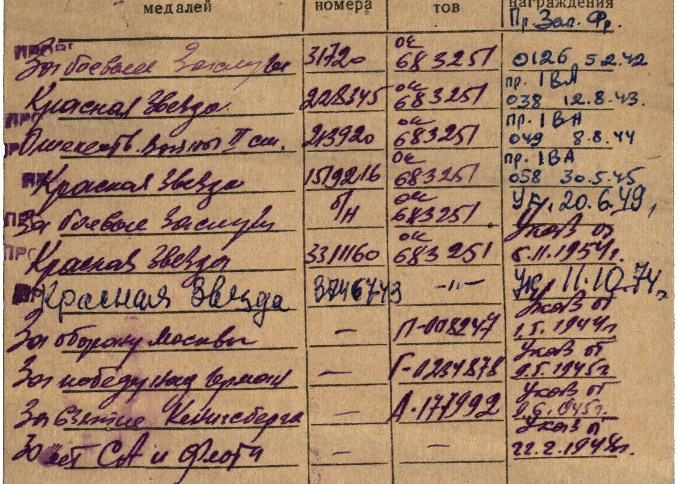 медалей номера тов награждения
Пр. Зап. Фр.
За боевые заслуги 31720 ок 683251 0126 5.2.42
Красная Звезда 2228345 ок 683251 пр. 1ВА 038 12.8.43.
Отечеств. войны II ст. 213920 ок 683251 пр. 1ВА 049 8.8.44
Красная Звезда 1519216 ок 683251 пр. 1ВА 058 30.5.45
За боевые заслуги б/н ок 683251 Ук. 20.6.49,
Красная Звезда 3311160 ок 683251 Указ от 5.11.1954г.
Красная Звезда 3746743 -"- Ук. 11.10.74г,
За оборону Москвы — П-008247 Указ от 1.5.1944г
За победу над Герман — Г-0234878 Указ от 9.5.1945г.
За взятие Кенигсберга — А-177992 Указ от 9.6.1945г.
30 лет СА и Флота Указ от 22.2.1948г.